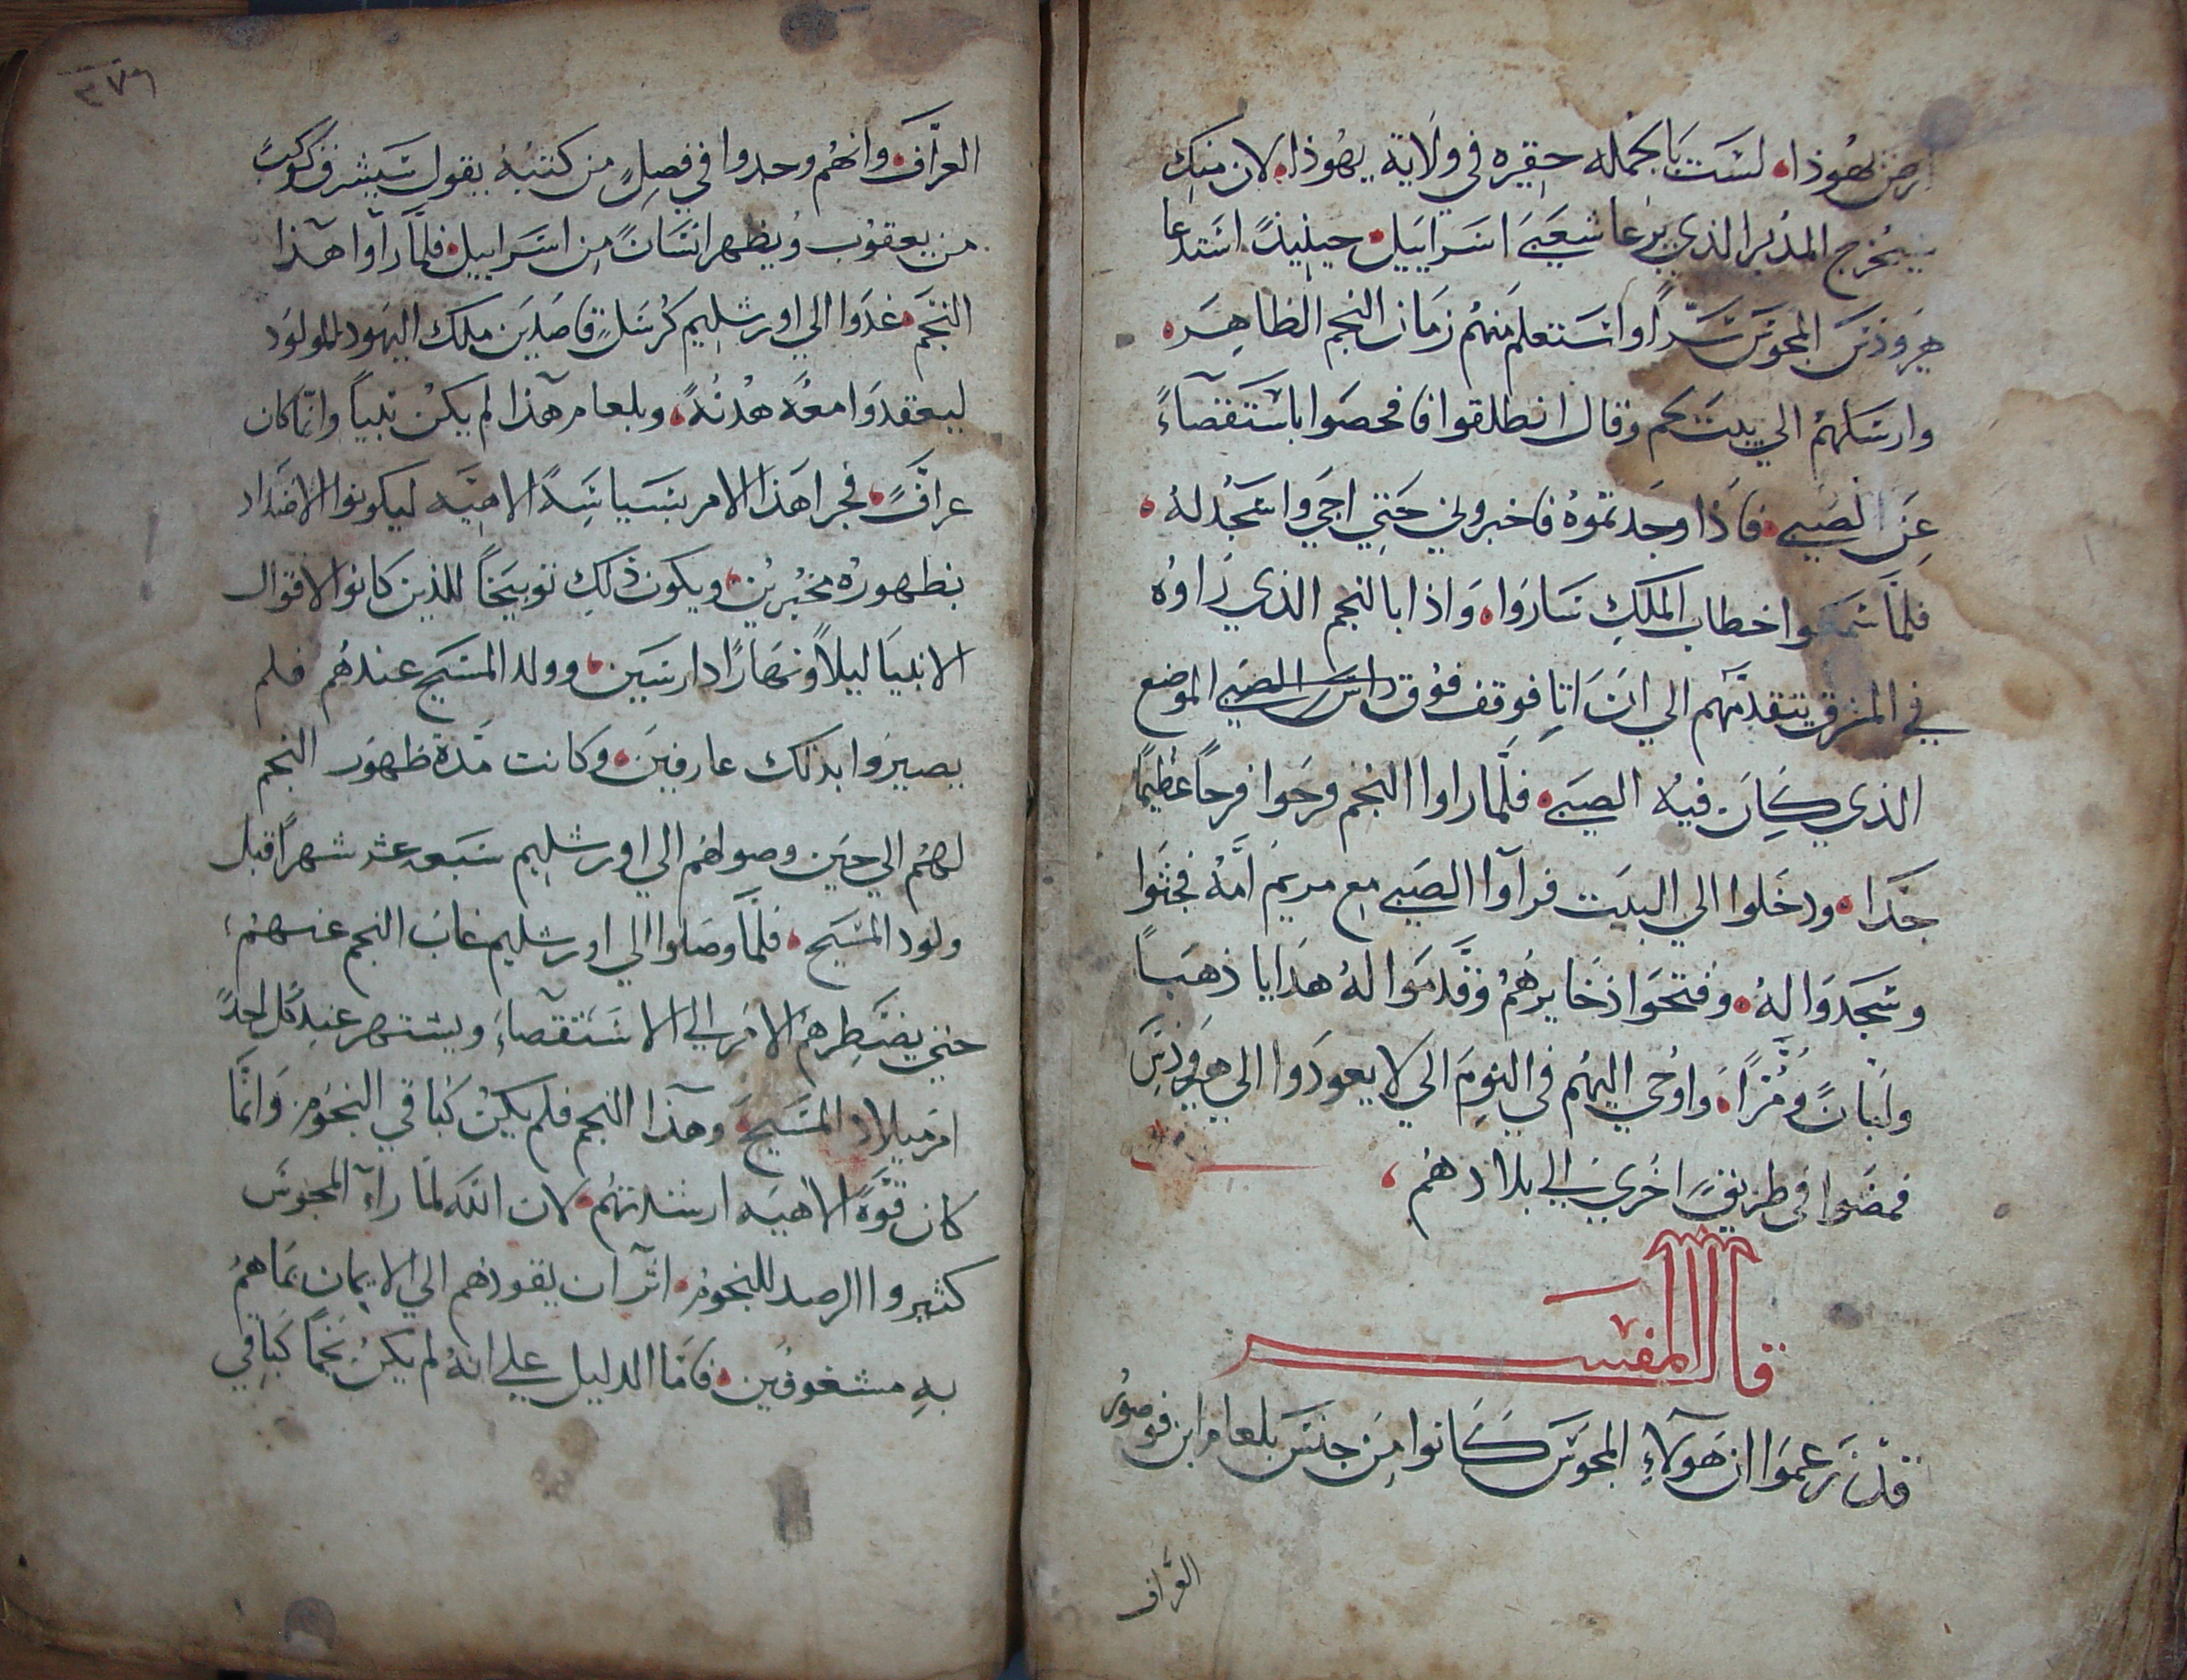 ارض يهوذا لست بالجمله حقيره في ولاية يهوذا لان منك
سيخرج المدبر الذي يرعا شعبي اسراييل حينيذً استدعا
هيروذس المجوس سرًا واستعلم منهم زمان النجم الظاهر
وارسلهم الي بيت لحم وقال انطلقوا فافحصوا باستقصآءً
عن الصبي فاذا وجدتموه فاخبروني حتي اجي واسجد لهُ
فلمّا سمعوا خطاب الملك ساروا واذا بالنجم الذي راوه
في المشرق يتقدّمهم الي ان اتا فوقف فوق راس الصبي الموضع
الذي كان فيه الصبي فلمّا راوا النجم فرحوا فرحاً عظيمًا
جدا ودخلوا الي البيت فرآوا الصبي مع مريم امّهُ فجثوا
وسجدوا لهُ وفتحوا ذخايرهم وقدّموا لهُ هدايا ذهباً
ولبانً ومُرّاً واوحي اليهم في النوم الي لا يعودوا الي هيروذس
فمضوا في طريقٍ اخري الي بلادهم
قال المفسر
قد زعموا ان هولآءِ المجوس كانوا من جنس بلعام ابن فوصور
العرّاف
٢٧٦
العرّاف وانهم وجدوا في فصلٍ من كتبهُ يقول سيشرق كوكبً
من يعقوب ويظهر انسانً من اسراييل فلمّا رآوا هذا
النجم غدوا الي اورشليم كرسلٍ قاصدين ملك اليهود المولود
ليعقدوا معهُ هُدنُهً وبلعام هذا لم يكن نبياً وانّما كان
عرافً فجرا هذا الامر بسياسةً الاهيّه ليكونوا الاضداد
بظهوره مخبرين ويكون ذلك توبيخاً للذين كانوا لاقوال
الانبيا ليلاً ونهارًا دارسين وولد المسيح عندهم فلم
يصيروا بذلك عارفين وكانت مدّة ظهور النجم
لهم الي حين وصولهم الي اورشليم سبعه عشر شهراً قبل
ولود المسيح فلمّا وصلوا الي اورشليم غاب النجم عنهم
حتي يضطرهم الامر الي الاستقصآء ويشتهر عند كل احدً
امر ميلاد المسيح وهذا النجم فلم يكن كباقي النجوم وانّما
كان قوّةً الاهيه ارشدتهم لان اللّه لمّا رآء المجوس
كثيروا الرصد للنجوم اثر ان يقودهم الي الايمان بما هم
بهِ مشغوفين فامّا الدليل علي انهُ لم يكن نجماً كباقي